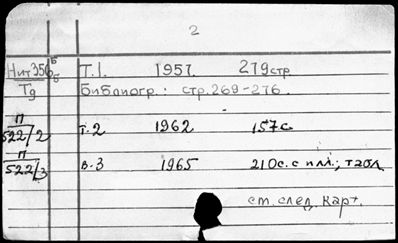 2
Нит356 Б/б Т.1. 1957. 279стр
Тд Библиогр.: стр.269-276.
П
522/2 т.2 1962 157с
П
522/3 в.3 1965 210с. с илл.; табл
см. след. карт.